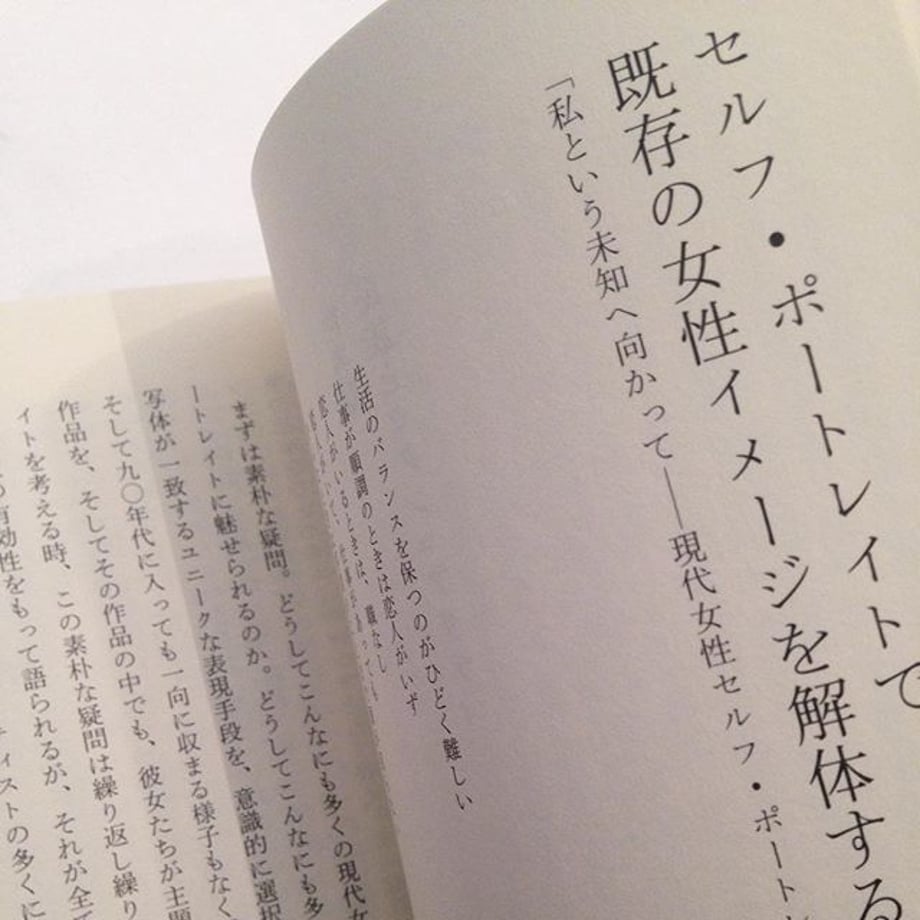 セルフ・ポートレイトで
既存の女性イメージを解体する
「私という未知へ向かって――現代女性セルフ・ポート
生活のバランスを保つのがひどく難しい
仕事が順調のときは恋人がいず
恋人がいるときは、職なし
まずは素朴な疑問。どうしてこんなにも多くの現代女
ートレイトに魅せられるのか。どうしてこんなにも多
写体が一致するユニークな表現手段を、意識的に選択
そして九〇年代に入っても一向に収まる様子もなく
作品を、そしてその作品の中でも、彼女たちが主題
イトを考える時、この素朴な疑問は繰り返し繰り
有効性をもって語られるが、それが全
ィストの多くに